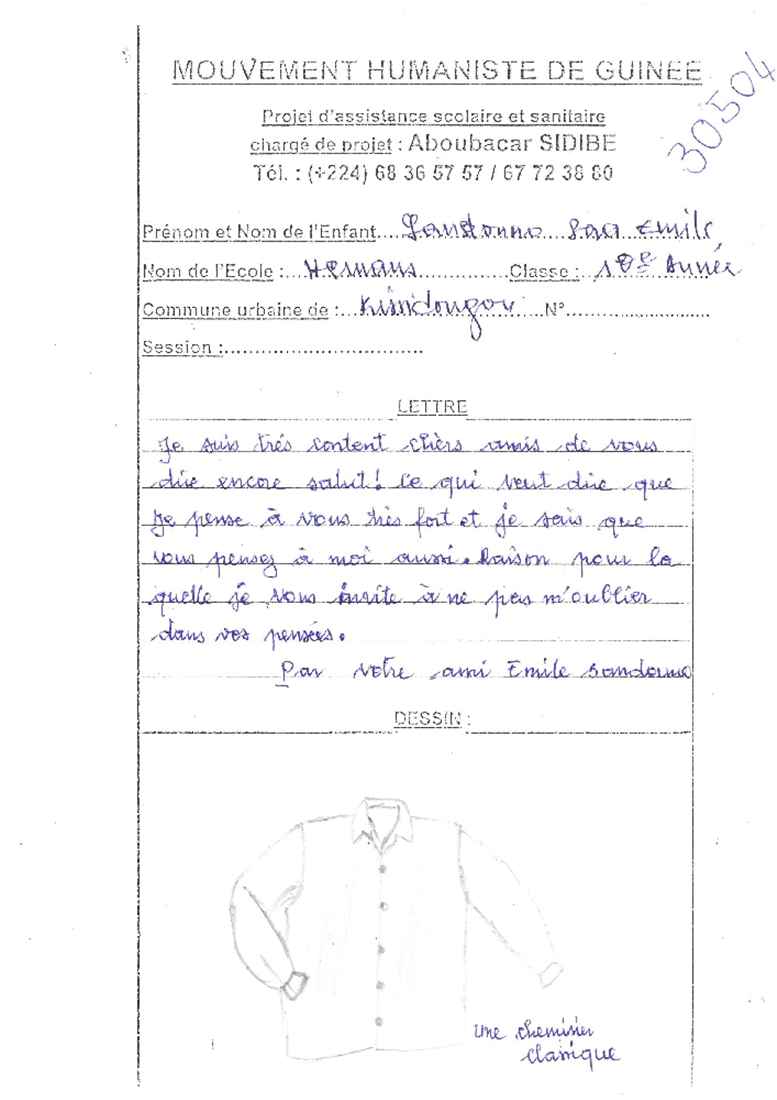 MOUVEMENT HUMANISTE DE GUINEE
30504
Projet d'assistance scolaire et sanitaire
chargé de projet : Aboubacar SIDIBE
Tél. : (+224) 68 36 57 57 / 67 72 38 80
Prénom et Nom de l'Enfant.... Emile
Nom de l'Ecole :... Hermans...............Classe :... 10e Année
Commune urbaine de :... Kissidougou.....N°........................
Session :.................................
LETTRE
Je suis très content chers amis de vous
dire encore salut! Ce qui veut dire que
je pense à vous très fort et je sais que
vous pensez à moi aussi. Raison pour la
quelle je vous invite à ne pas m'oublier
dans vos pensées.
Par votre ami Emile
DESSIN :
une cheminier
classique